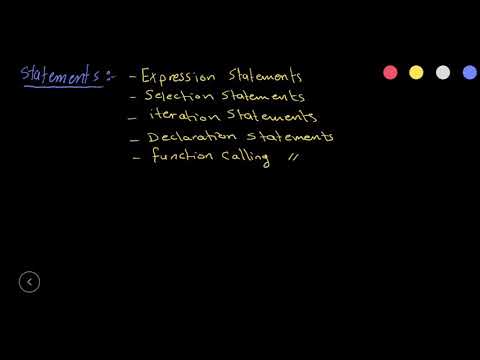 Statements:- - Expression Statements
- Selection Statements
- iteration Statements
- Declaration Statements
- function Calling "